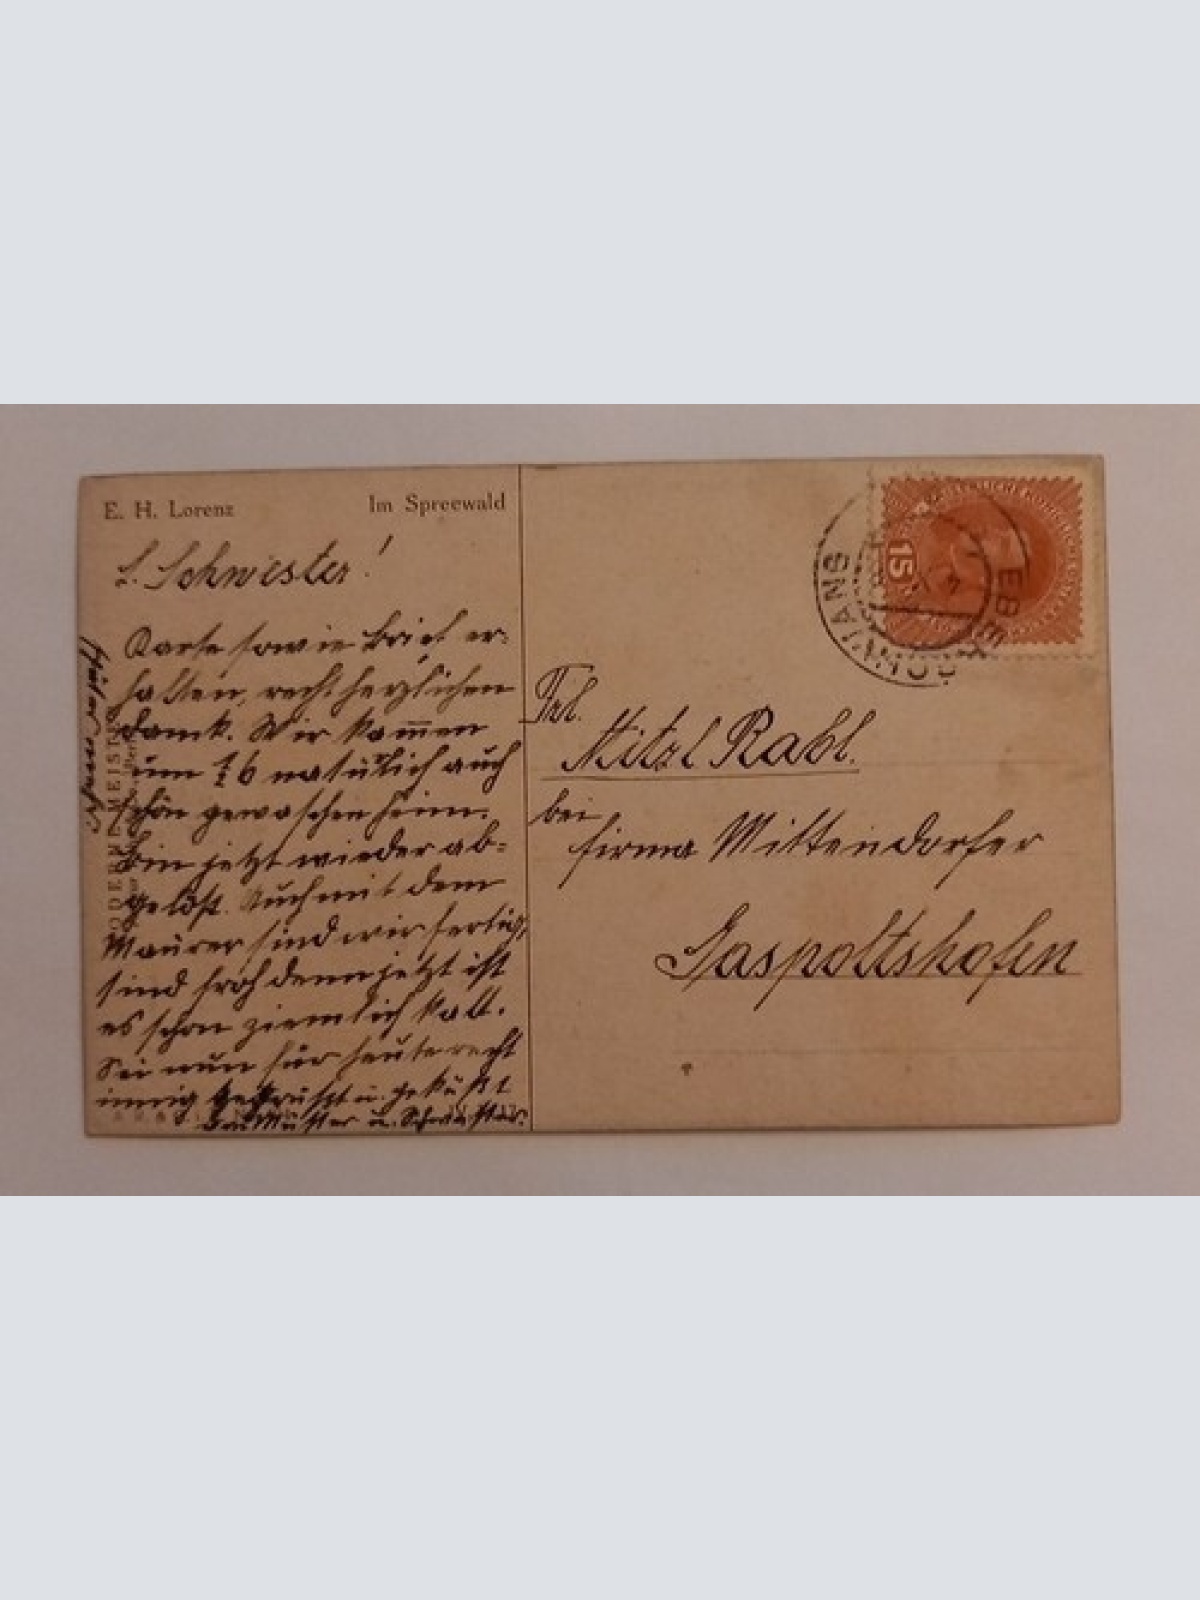 E. H. Lorenz Im Spreewald
L. Schwester!
Karte sowie Brief er-
halten, recht herzlichen
Dank. Wir kom̅en
um ½ 6 natürlich auch
schön gewaschen heim.
Bin jetzt wieder ab-
gelöst. Auch mit dem
Maurer sind wir fertig,
sind froh denn jetzt ist
es schon ziemlich kalt.
Sei nun für heute recht
innig gegrüßt u. geküßt
Mutter u. Schwester.
MODERNE MEISTER
15
Frl.
Mitzl Rabl.
bei
Firma Mittendorfer
Gaspoltshofen